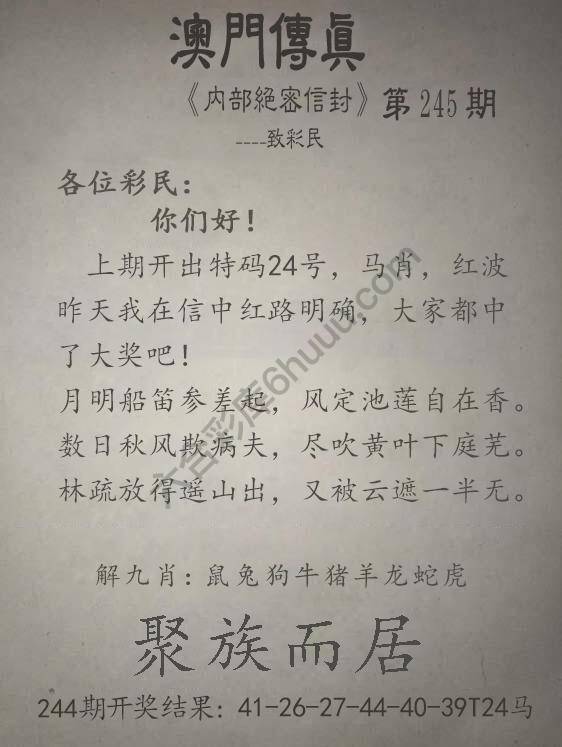 澳門傳眞
《内部絕密信封》第245期
----致彩民
各位彩民：
你们好！
上期开出特码24号，马肖，红波
昨天我在信中红路明确，大家都中
了大奖吧！
月明船笛参差起，风定池莲自在香。
数日秋风欺病夫，尽吹黄叶下庭芜。
林疏放得遥山出，又被云遮一半无。
六合彩库6huuu.com
解九肖：鼠兔狗牛猪羊龙蛇虎
聚族而居
244期开奖结果：41-26-27-44-40-39T24马